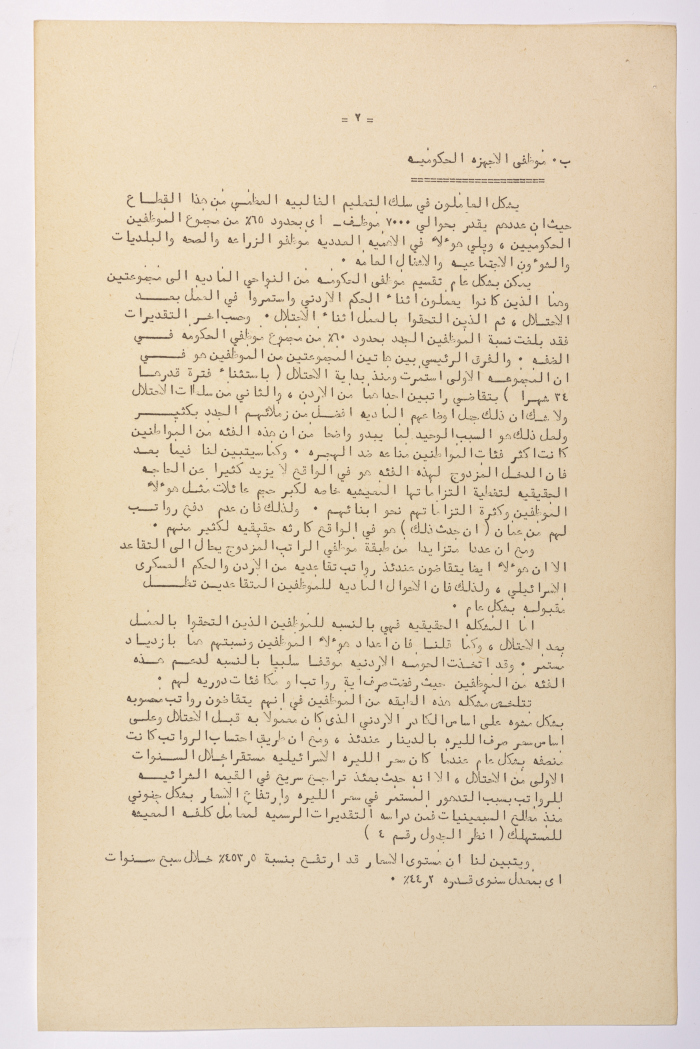 = ٢ =
ب • موظفى الاجهزه الحكوميه
يشكل العاملون في سلك التعليم الغالبيه العظمى من هذا القطاع
حيث ان عددهم يقدر بحوالي ٧٠٠٠ موظف ـ اى بحدود ٦٥٪ من مجموع الموظفين
الحكوميين ، ويلي هوءلاء في الاهميه العدديه موظفو الزراعه والصحه والبلديات
والشوءون الاجتماعيه والاشغال العامه •
يمكن بشكل عام تقسيم موظفى الحكومه من النواحي الماديه الى مجموعتين
وهما الذين كانوا يعملون اثناء الحكم الاردني واستمروا في العمل بعد
الاحتلال ، ثم الذين التحقوا بالعمل اثناء الاحتلال • وحسب اخر التقديرات
فقد بلغت نسبة الموظفين الجدد بحدود ٦٠٪ من مجموع موظفي الحكومه في
الضفه • والفرق الرئيسي بين هاتين المجموعتين من الموظفين هو في
ان المجموعه الاولى استمرت ومنذ بداية الاحتلال ( باستثناء فترة قدرها
٣٤ شهرا ) بتقاضي راتبين احداهما من الاردن ، والثاني من سلطات الاحتلال
ولا شك ان ذلك جعل اوضاعهم الماديه افضل من زملائهم الجدد بكثير
ولعل ذلك هو السبب الوحيد لما يبدو واضحا من ان هذه الفئه من المواطنين
كانت اكثر فئات المواطنين مناعه ضد الهجره • وكما سيتبين لنا فيما بعد
فان الدخل المزدوج لهذه الفئه هو في الواقع لا يزيد كثيرا عن الحاجه
الحقيقيه لتغطية التزاماتها المعيشيه خاصه لكبر حجم عائلات مثل هوءلاء
الموظفين وكثرة التزاماتهم نحو ابنائهم • ولذلك فان عدم دفع رواتب
لهم من عمان ( ان حدث ذلك ) هو في الواقع كارثه حقيقيه لكثير منهم •
ومع ان عددا متزايدا من طبقة موظفي الراتب المزدوج يحال الى التقاعد
الا ان هوءلاء ايضا يتقاضون عندئذ رواتب تقاعديه من الاردن والحكم العسكرى
الاسرائيلي ، ولذلك فان الاحوال الماديه للموظفين المتقاعدين تظل
مقبوله بشكل عام •
اما المشكله الحقيقيه فهي بالنسبه للموظفين الذين التحقوا بالعمل
بعد الاحتلال ، وكما قلنا فان اعداد هوءلاء الموظفين ونسبتهم هما بازدياد
مستمر • وقد اتخذت الحومه الاردنيه موقفا سلبيا بالنسبه لدعم هذه
الفئه من الموظفين حيث رفضت صرف اية رواتب او مكافئات دوريه لهم •
تتلخص مشكله هذه الطبقه من الموظفين في انهم يتقاضون رواتب محسوبه
بشكل مشوه على اساس الكادر الاردني الذى كان معمولا به قبل الاحتلال وعلى
اساس سعر صرف الليره بالدينار عندئذ ، ومع ان طريق احتساب الرواتب كانت
منصفه بشكل عام عندما كان سعر الليره الاسرائيليه مستقرا خلال السنوات
الاولى من الاحتلال ، الا انه حدث بعدئذ تراجع سريع في القيمه الشرائيه
للرواتب بسبب التدهور المستمر في سعر الليره وارتفاع الاسعار بشكل جنوني
منذ مطلع السبعينيات فمن دراسه التقديرات الرسميه لمعامل كلفه المعيشه
للمستهلك ( انظر الجدول رقم ٤ )
ويتبين لنا ان مستوى الاسعار قد ارتفع بنسبة ٥ر٤٥٣٪ خلال سبع سنوات
اى بمعدل سنوى قدره ٢ر٤٤٪ •